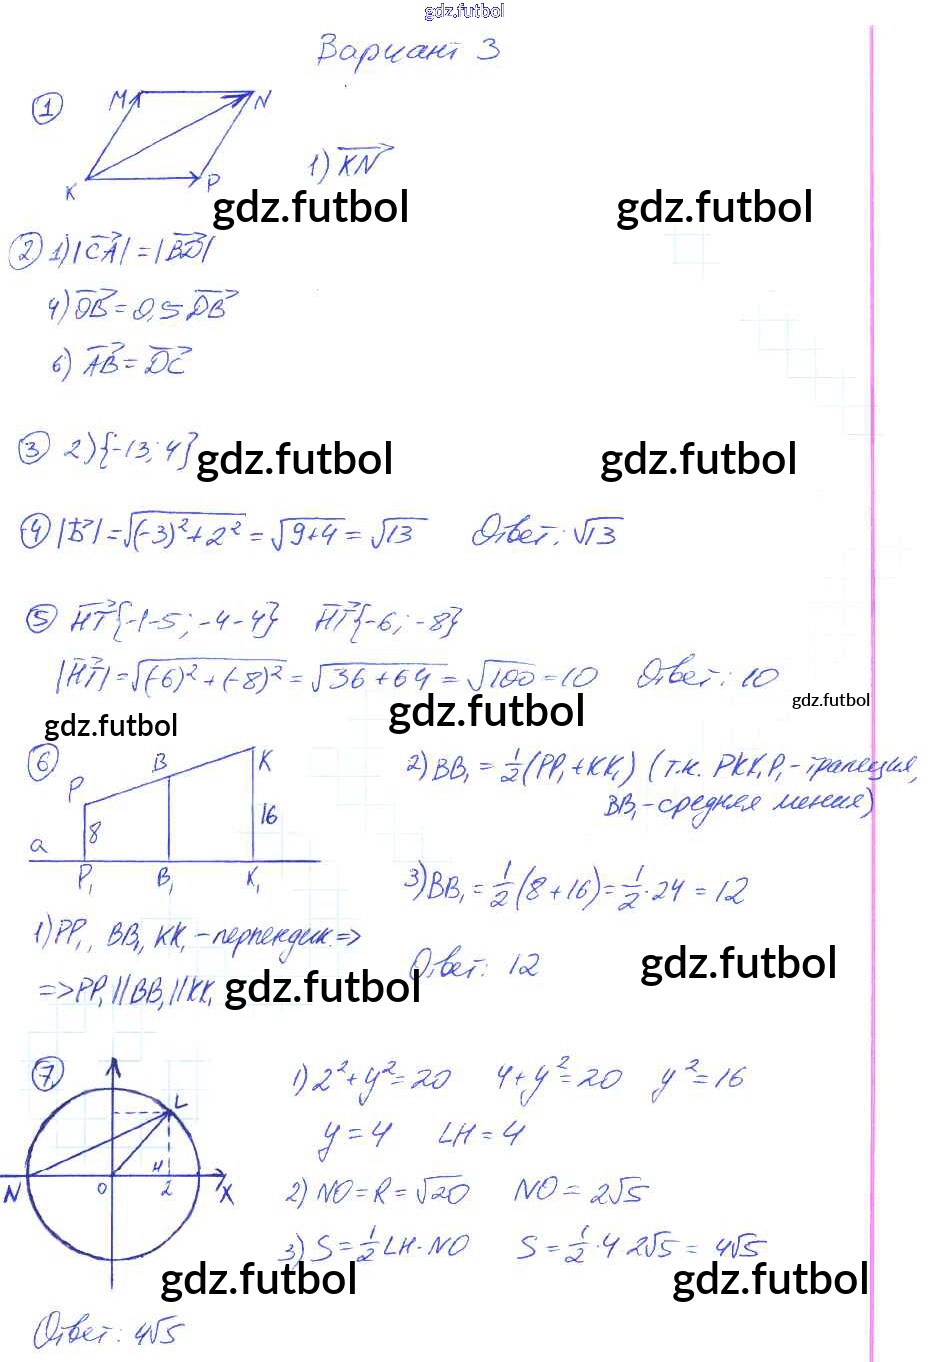 gdz.futbol
Вариант 3
① M N
K P
1) KN
gdz.futbol gdz.futbol
② 1) |CA| = |BD|
4) OB = 0,5 DB
6) AB = DC
③ 2) {-13; 4}
gdz.futbol gdz.futbol
④ |b| = √(-3)²+2² = √9+4 = √13 Ответ: √13
⑤ HT{-1-5; -4-4} HT{-6; -8}
|HT| = √(-6)²+(-8)² = √36+64 = √100 = 10 Ответ: 10
gdz.futbol gdz.futbol gdz.futbol
⑥ P B K
8 16
a P₁ B₁ K₁
1) PP₁, BB₁, KK₁ - перпендик. =>
=> PP₁ || BB₁ || KK₁
2) BB₁ = 1/2 (PP₁ + KK₁) (т.к. PKK₁P₁ - трапеция,
BB₁ - средняя линия)
3) BB₁ = 1/2 (8 + 16) = 1/2 · 24 = 12
Ответ: 12
gdz.futbol gdz.futbol
⑦ L
N O H 2 X
1) 2² + y² = 20 4 + y² = 20 y² = 16
y = 4 LH = 4
2) NO = R = √20 NO = 2√5
3) S = 1/2 LH · NO S = 1/2 · 4 2√5 = 4√5
gdz.futbol gdz.futbol
Ответ: 4√5